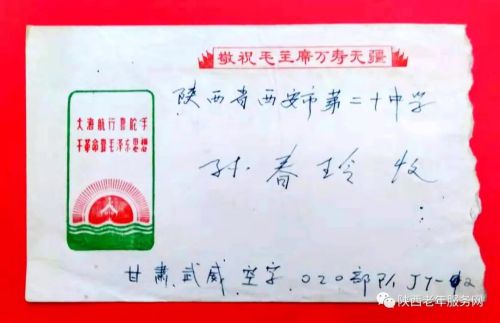 敬祝毛主席万寿无疆
陕西省西安市第二十中学
大海航行靠舵手
干革命靠毛泽东思想
孙春玲 收
甘肃 武威 空字 020部队
陕西老年服务网